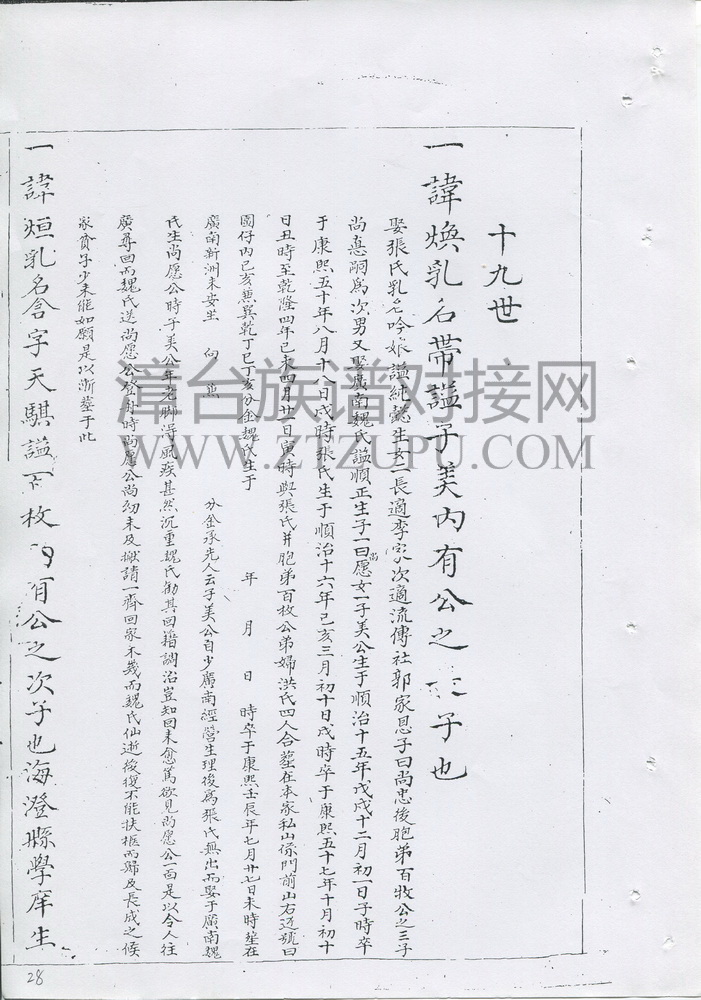 十九世
一諱煥乳名帶謚子美內有公之子也
娶張氏乳名吟娘謚純懿生女二長適李家次適流傳社郭家息子曰尚忠後胞弟百牧公之三子
尚嗣為次男又娶廣南魏氏謚順正生子一曰尚愿女一子美公生于順治十五年戊戌十二月初一日子時卒
于康熙五十年八月十八日戌時張氏生于順治十六年己亥三月初十日戌時卒于康熙五十七年十月初十
日丑時至乾隆四年己未四月廿一日寅時與張氏并胞弟百枚公弟婦洪氏四人合葬在本家私山門前山右號曰
園仔內己亥兼巽乾丁巳丁亥分金魏氏生于 年 月 日 時卒于康熙壬辰年七月廿七日未時塟在
廣南新洲未安坐 向 兼 分金承先人云子美公自少廣南經營生理後為張氏無出而娶于廣南魏
氏生尚愿公時子美公年老脚得風疾甚然沉重魏氏勸其回籍調治豈知回來愈篤欲見尚愿公一面是以令人往
廣尋回而魏氏送尚愿公登舟時尚愿公尚幼未及搬請一齊回家不幾而魏氏仙逝後復不能扶柩而歸及長成之候
家貧子少未能如願是以漸塟于此
一諱烜乳名含字天騏謚百枚內有公之次子也海澄縣學庠生
28
漳台族谱对接网
WWW.ZTZUPU.COM